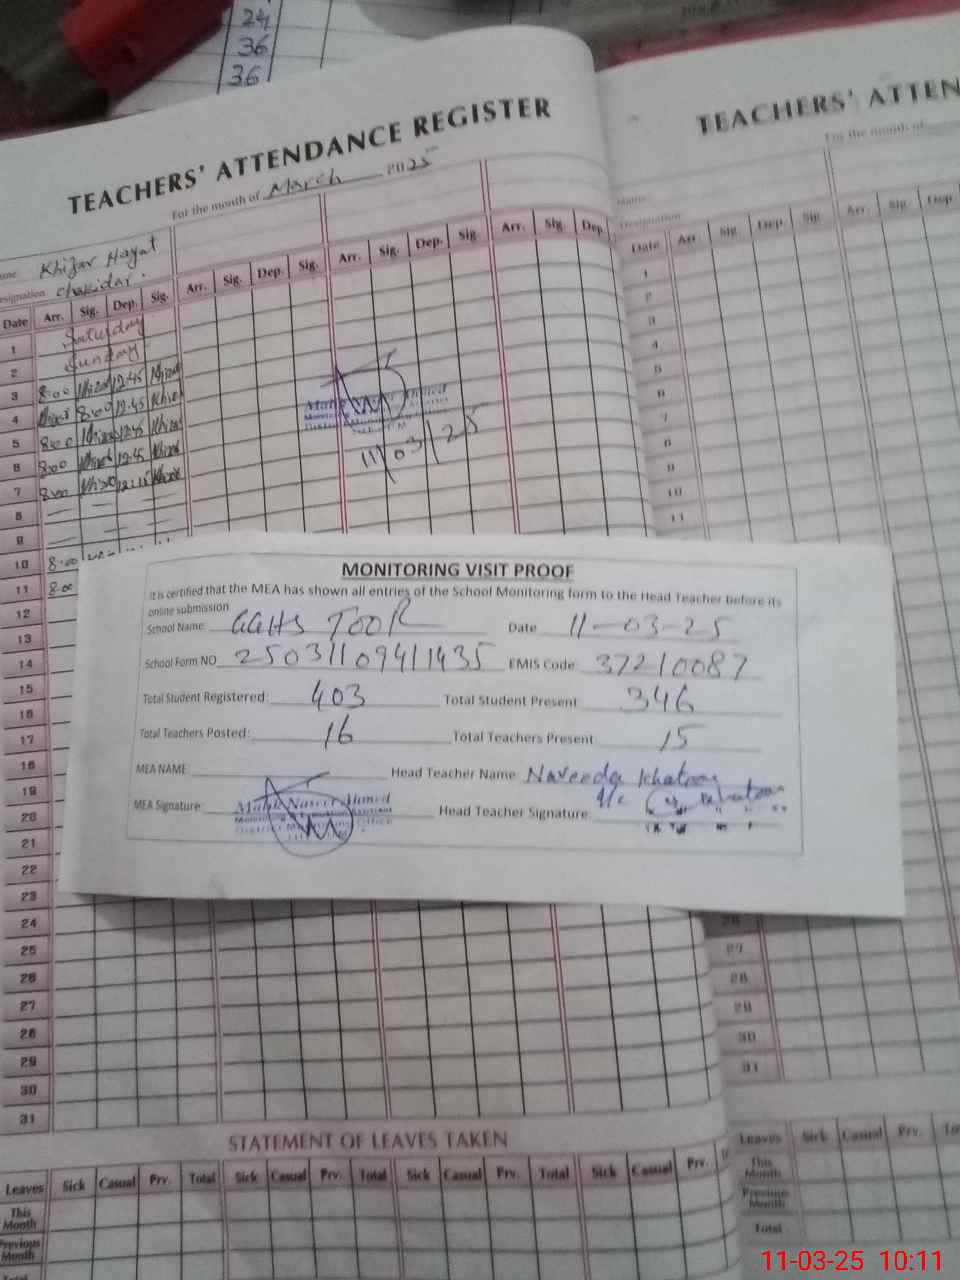 24
36
36
TEACHERS' ATTENDANCE REGISTER
For the month of March 2025
Khizar Hayat
Designation Chakidar
Date Arr. Sig. Dep. Sig. Arr. Sig. Dep. Sig. Arr. Sig. Dep. Sig. Arr. Sig. Dep.
1 Saturday
2 Sunday
3 8:00 Khizar 12:45 Khizar
4 Khizar 8:00 12:45 Khizar
5 8:00 Khizar 12:45 Khizar
6 8:00 Khizar 12:45 Khizar
7 8:00 Khizar 12:15 Khizar
8
9
10 8:00
11 8:00
12
13
14
15
16
17
18
19
20
21
22
23
24
25
26
27
28
29
30
31
11/03/25
MONITORING VISIT PROOF
It is certified that the MEA has shown all entries of the School Monitoring form to the Head Teacher before its
online submission
School Name: GGHS TOOR Date 11-03-25
School Form NO 25031109411435 EMIS Code 37210087
Total Student Registered: 403 Total Student Present 346
Total Teachers Posted: 16 Total Teachers Present 15
MEA NAME: Head Teacher Name Naveeda Khatoon
MEA Signature: Naseer Ahmed Head Teacher Signature
STATEMENT OF LEAVES TAKEN
Leaves Sick Casual Prv. Total Sick Casual Prv. Total Sick Casual Prv. Total Sick Casual Prv.
This Month
Previous Month
Total
TEACHERS' ATTEN
For the month of
Name
Designation
Date Arr. Sig. Dep. Sig. Arr. Sig. Dep.
1
2
3
4
5
6
7
8
9
10
11
26
27
28
29
30
31
Leaves Sick Casual Prv.
This Month
Previous Month
Total
11-03-25 10:11